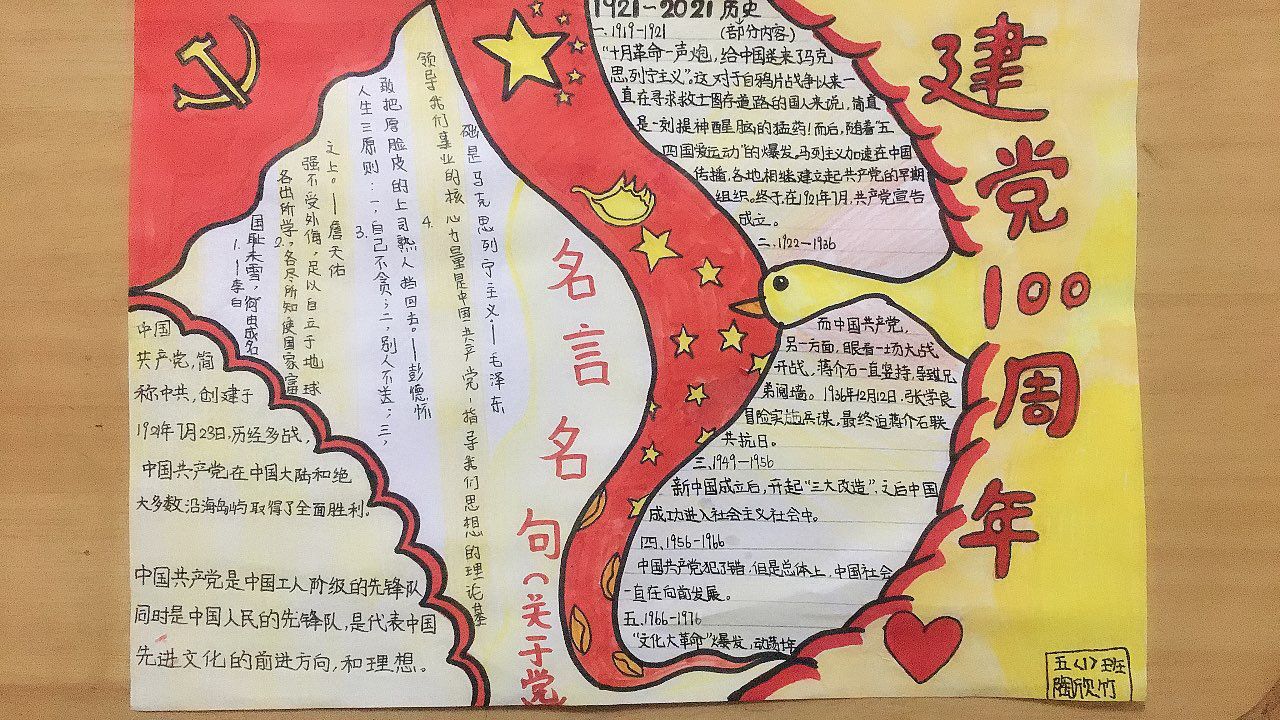 建党100周年
1921-2021历史
一、1919-1921 (部分内容)
“十月革命一声炮，给中国送来了马克
思，列宁主义”。这对于自鸦片战争以来一
直在寻求救亡图存道路的国人来说，简直
是一剂提神醒脑的猛药！而后，随着“五
四国爱运动”的爆发。马列主义加速在中国
传播，各地相继建立起共产党的早期
组织。终于在1921年7月，共产党宣告
成立。
二、1922-1936
而中国共产党，
另一方面，眼看一场大战
开战，蒋介石一直坚持，导致兄
弟阋墙。1936年12月12日，张学良
冒险实施兵谋，最终迫蒋介石联
共抗日。
三、1949-1956
新中国成立后，开起“三大改造”，之后中国
成功进入社会主义社会中。
四、1956-1966
中国共产党犯了错，但是总体上，中国社会
一直在向前发展。
五、1966-1976
“文化大革命”爆发，动荡十年
名言名句(关于党
1.
国耻未雪，何由成名
—李白
2.
各出所学，各尽所知使国家富
强不受外侮，足以自立于地球
之上。—詹天佑
3.
人生三原则：一，自己不贪；二，别人不送；三，
敢把厚脸皮的上司熟人挡回去。—彭德怀
4.
领导我们事业的核心力量是中国共产党-指导我们思想的理论基
础是马克思列宁主义—毛泽东
中国
共产党，简
称中共，创建于
1921年7月23日，历经多战，
中国共产党在中国大陆和绝
大多数沿海岛屿取得了全面胜利。
中国共产党是中国工人阶级的先锋队
同时是中国人民的先锋队，是代表中国
先进文化的前进方向，和理想。
五〈1〉班
陶欣竹